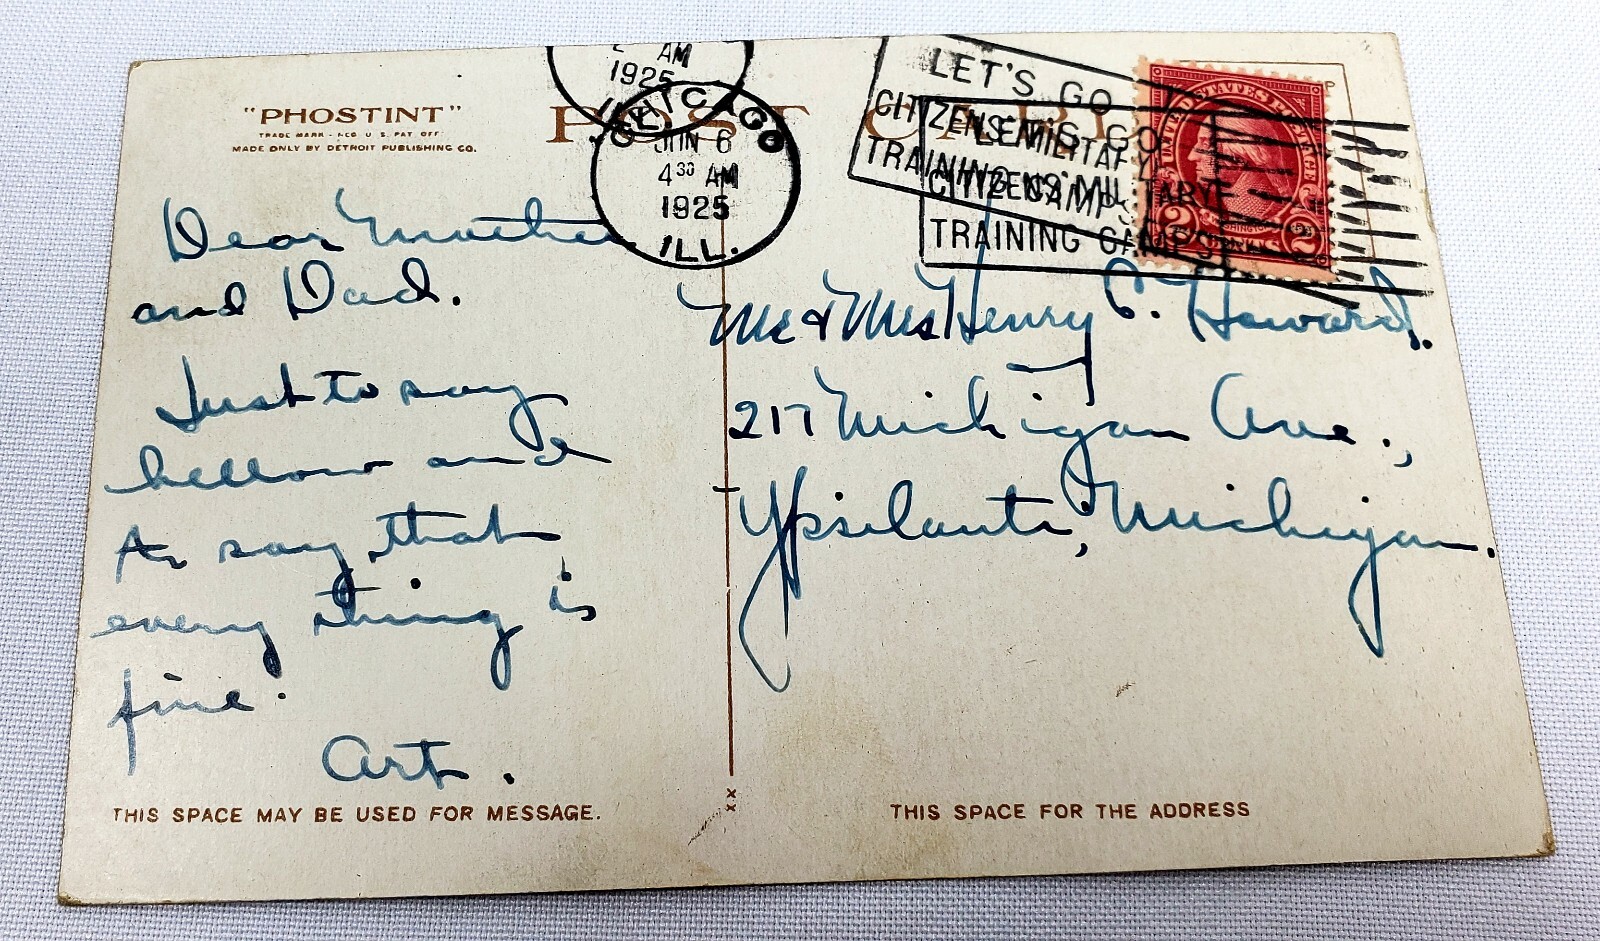 "PHOSTINT"
TRADE MARK - REG U. S. PAT OFF
MADE ONLY BY DETROIT PUBLISHING CO.
POST CARD
AM
1925
ILL.
CHICAGO
JUN 6
4 30 AM
1925
ILL.
LET'S GO
CITIZENS MILITARY
TRAINING CAMPS
LET'S GO
CITIZENS MILITARY
TRAINING CAMPS
UNITED STATES POSTAGE
WASHINGTON
2 CENTS 2
Dear Mother
and Dad.
Just to say
hellow and
to say that
every thing is
fine.
Art.
Mr & Mrs Henry C. Howard.
217 Michigan Ave.,
Ypsilanti, Michigan.
THIS SPACE MAY BE USED FOR MESSAGE.
THIS SPACE FOR THE ADDRESS